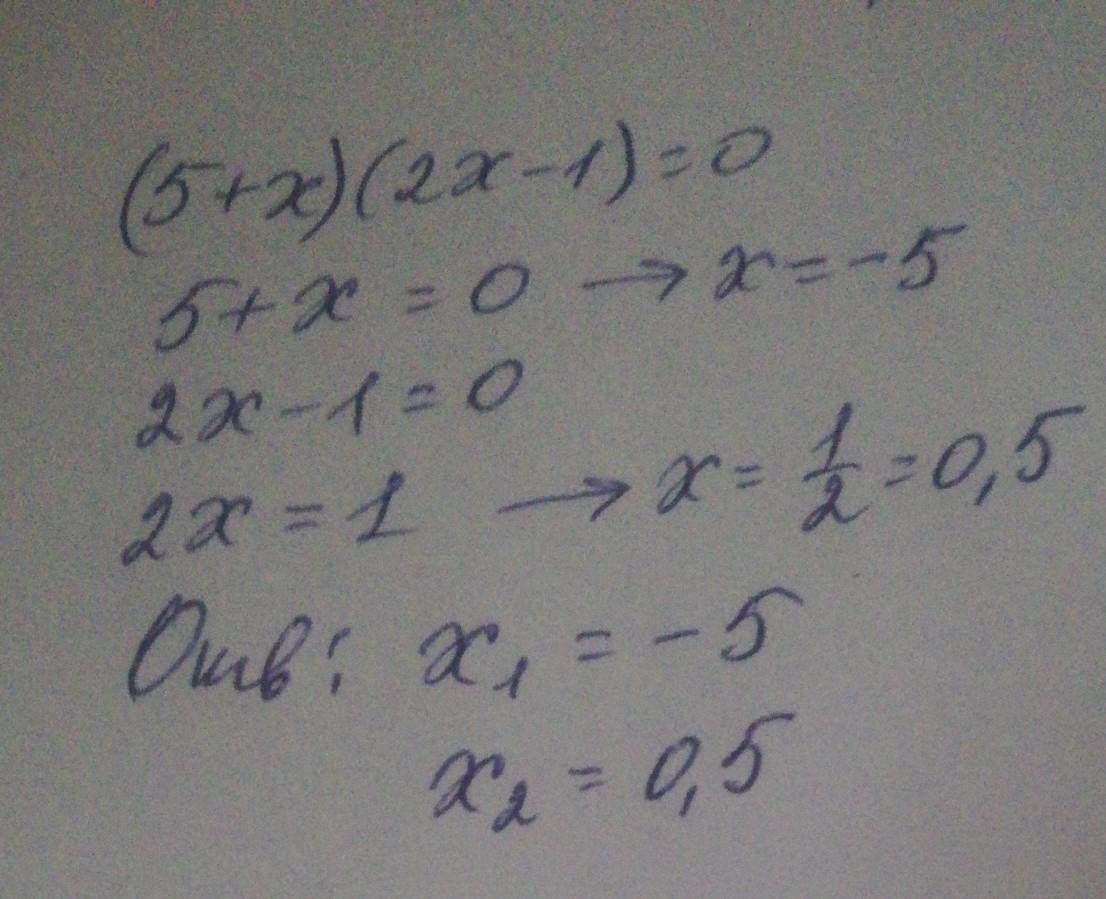 (5+x)(2x-1)=0
5+x=0 → x=-5
2x-1=0
2x=1 → x=1/2=0,5
Отв: x₁=-5
x₂=0,5